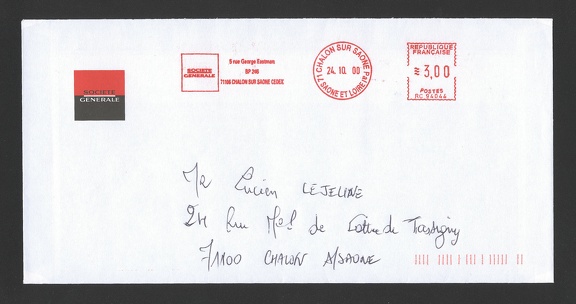 SOCIETE
GENERALE
SOCIETE
GENERALE
5 rue George Eastman
BP 246
71106 CHALON SUR SAONE CEDEX
71 CHALON SUR SAONE Pal
SAONE ET LOIRE
24.10.00
REPUBLIQUE
FRANÇAISE
3,00
POSTES
RC 94044
Mr Lucien LEJEUNE
24 Rue Mal de Lattre de Tassigny
71100 CHALON S/SAONE